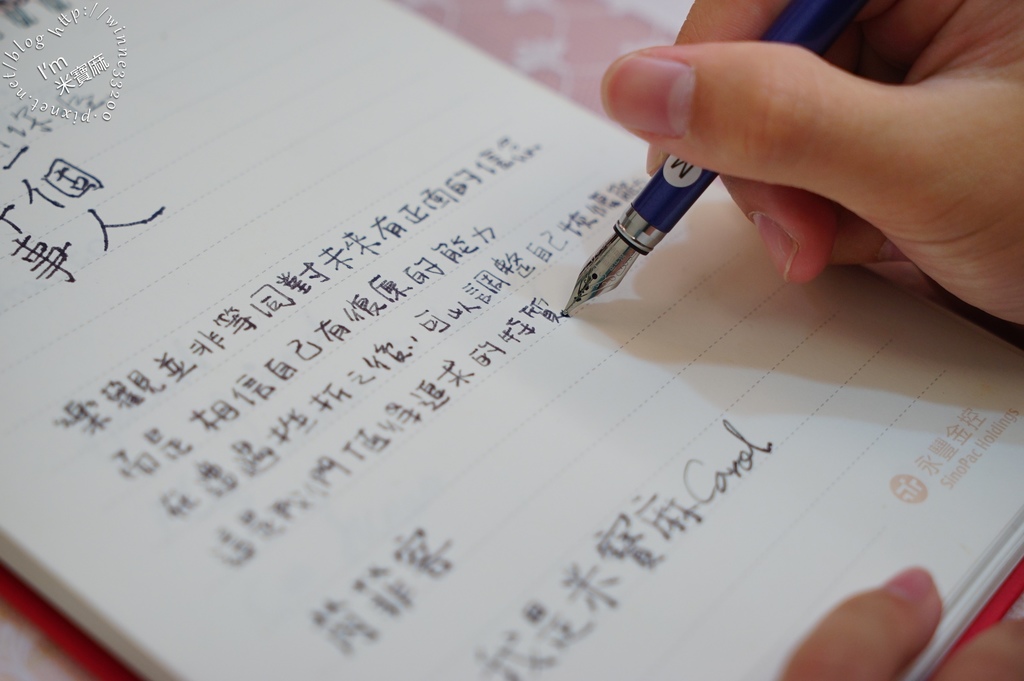 http://winnie33200.pixnet.net/blog
I'm
米寶麻
一個
人
事
樂觀並非等同對未來有正面的信念
而是相信自己有復原的能力
在遭遇挫折之後,可以調整自己恢復
這是我們值得追求的特質
簡菲客
我是米寶麻 Carol
M
永豐金控
SinoPac Holdings